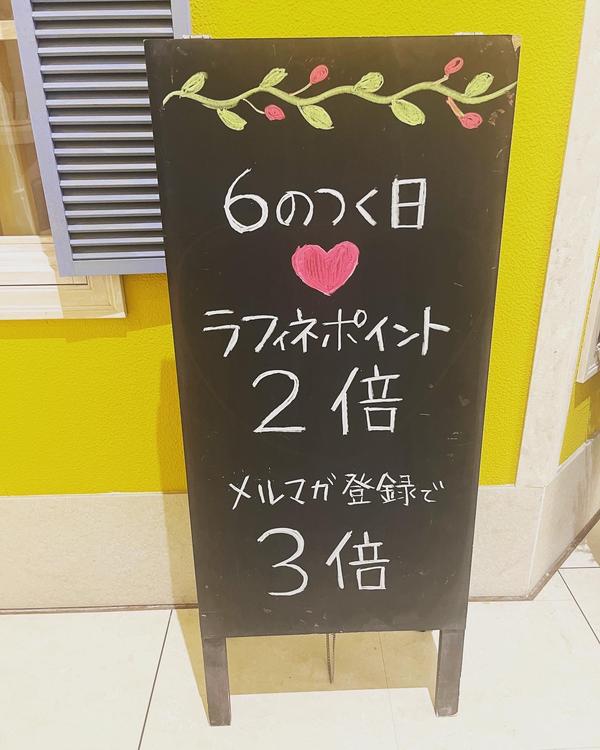 6のつく日
ラフィネポイント
2倍
メルマガ登録で
3倍